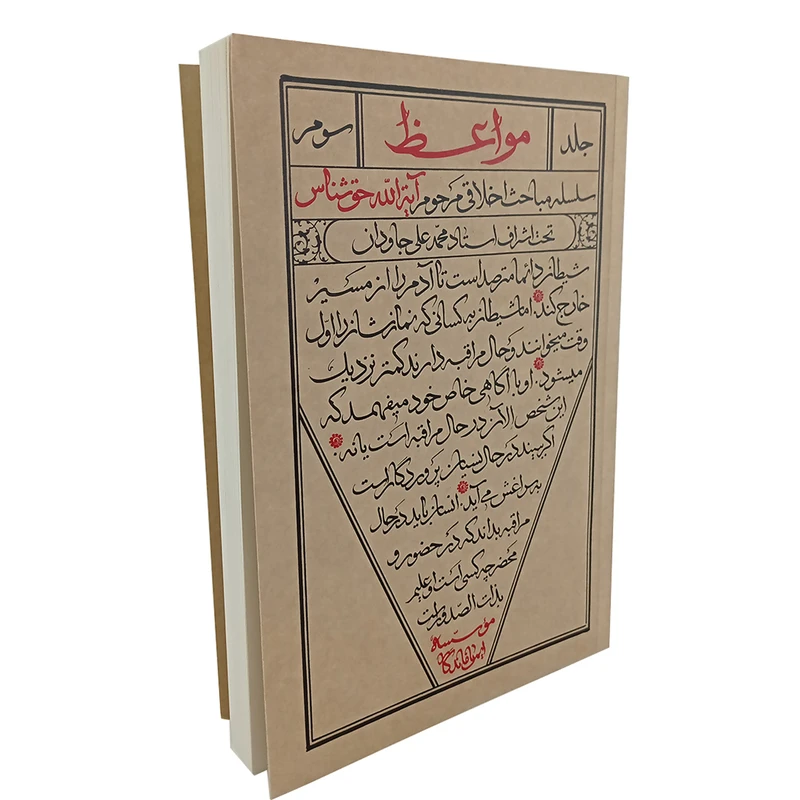 جلد مواعظ سوم
سلسله مباحث اخلاقی مرحوم آیة الله حق‌شناس
تحت اشراف استاد محمد علی جاودان
شیطان دائما مترصد است تا آدم را از مسیر
خارج کند. اما شیطان به کسانی که نمازشان را اول
وقت میخوانند و حال مراقبه دارند کمتر نزدیک
میشود. او با آگاهی خاص خود میفهمد که
این شخص الآن در حال مراقبه است یا نه.
اگر ببیند در حال نسیان پروردگار است
به سراغش می‌آید. انسان باید در حال
مراقبه بداند که در حضور و
محضر چه کسی است او علیم
بذات الصدور است
موسسه
ایمان ماندگار